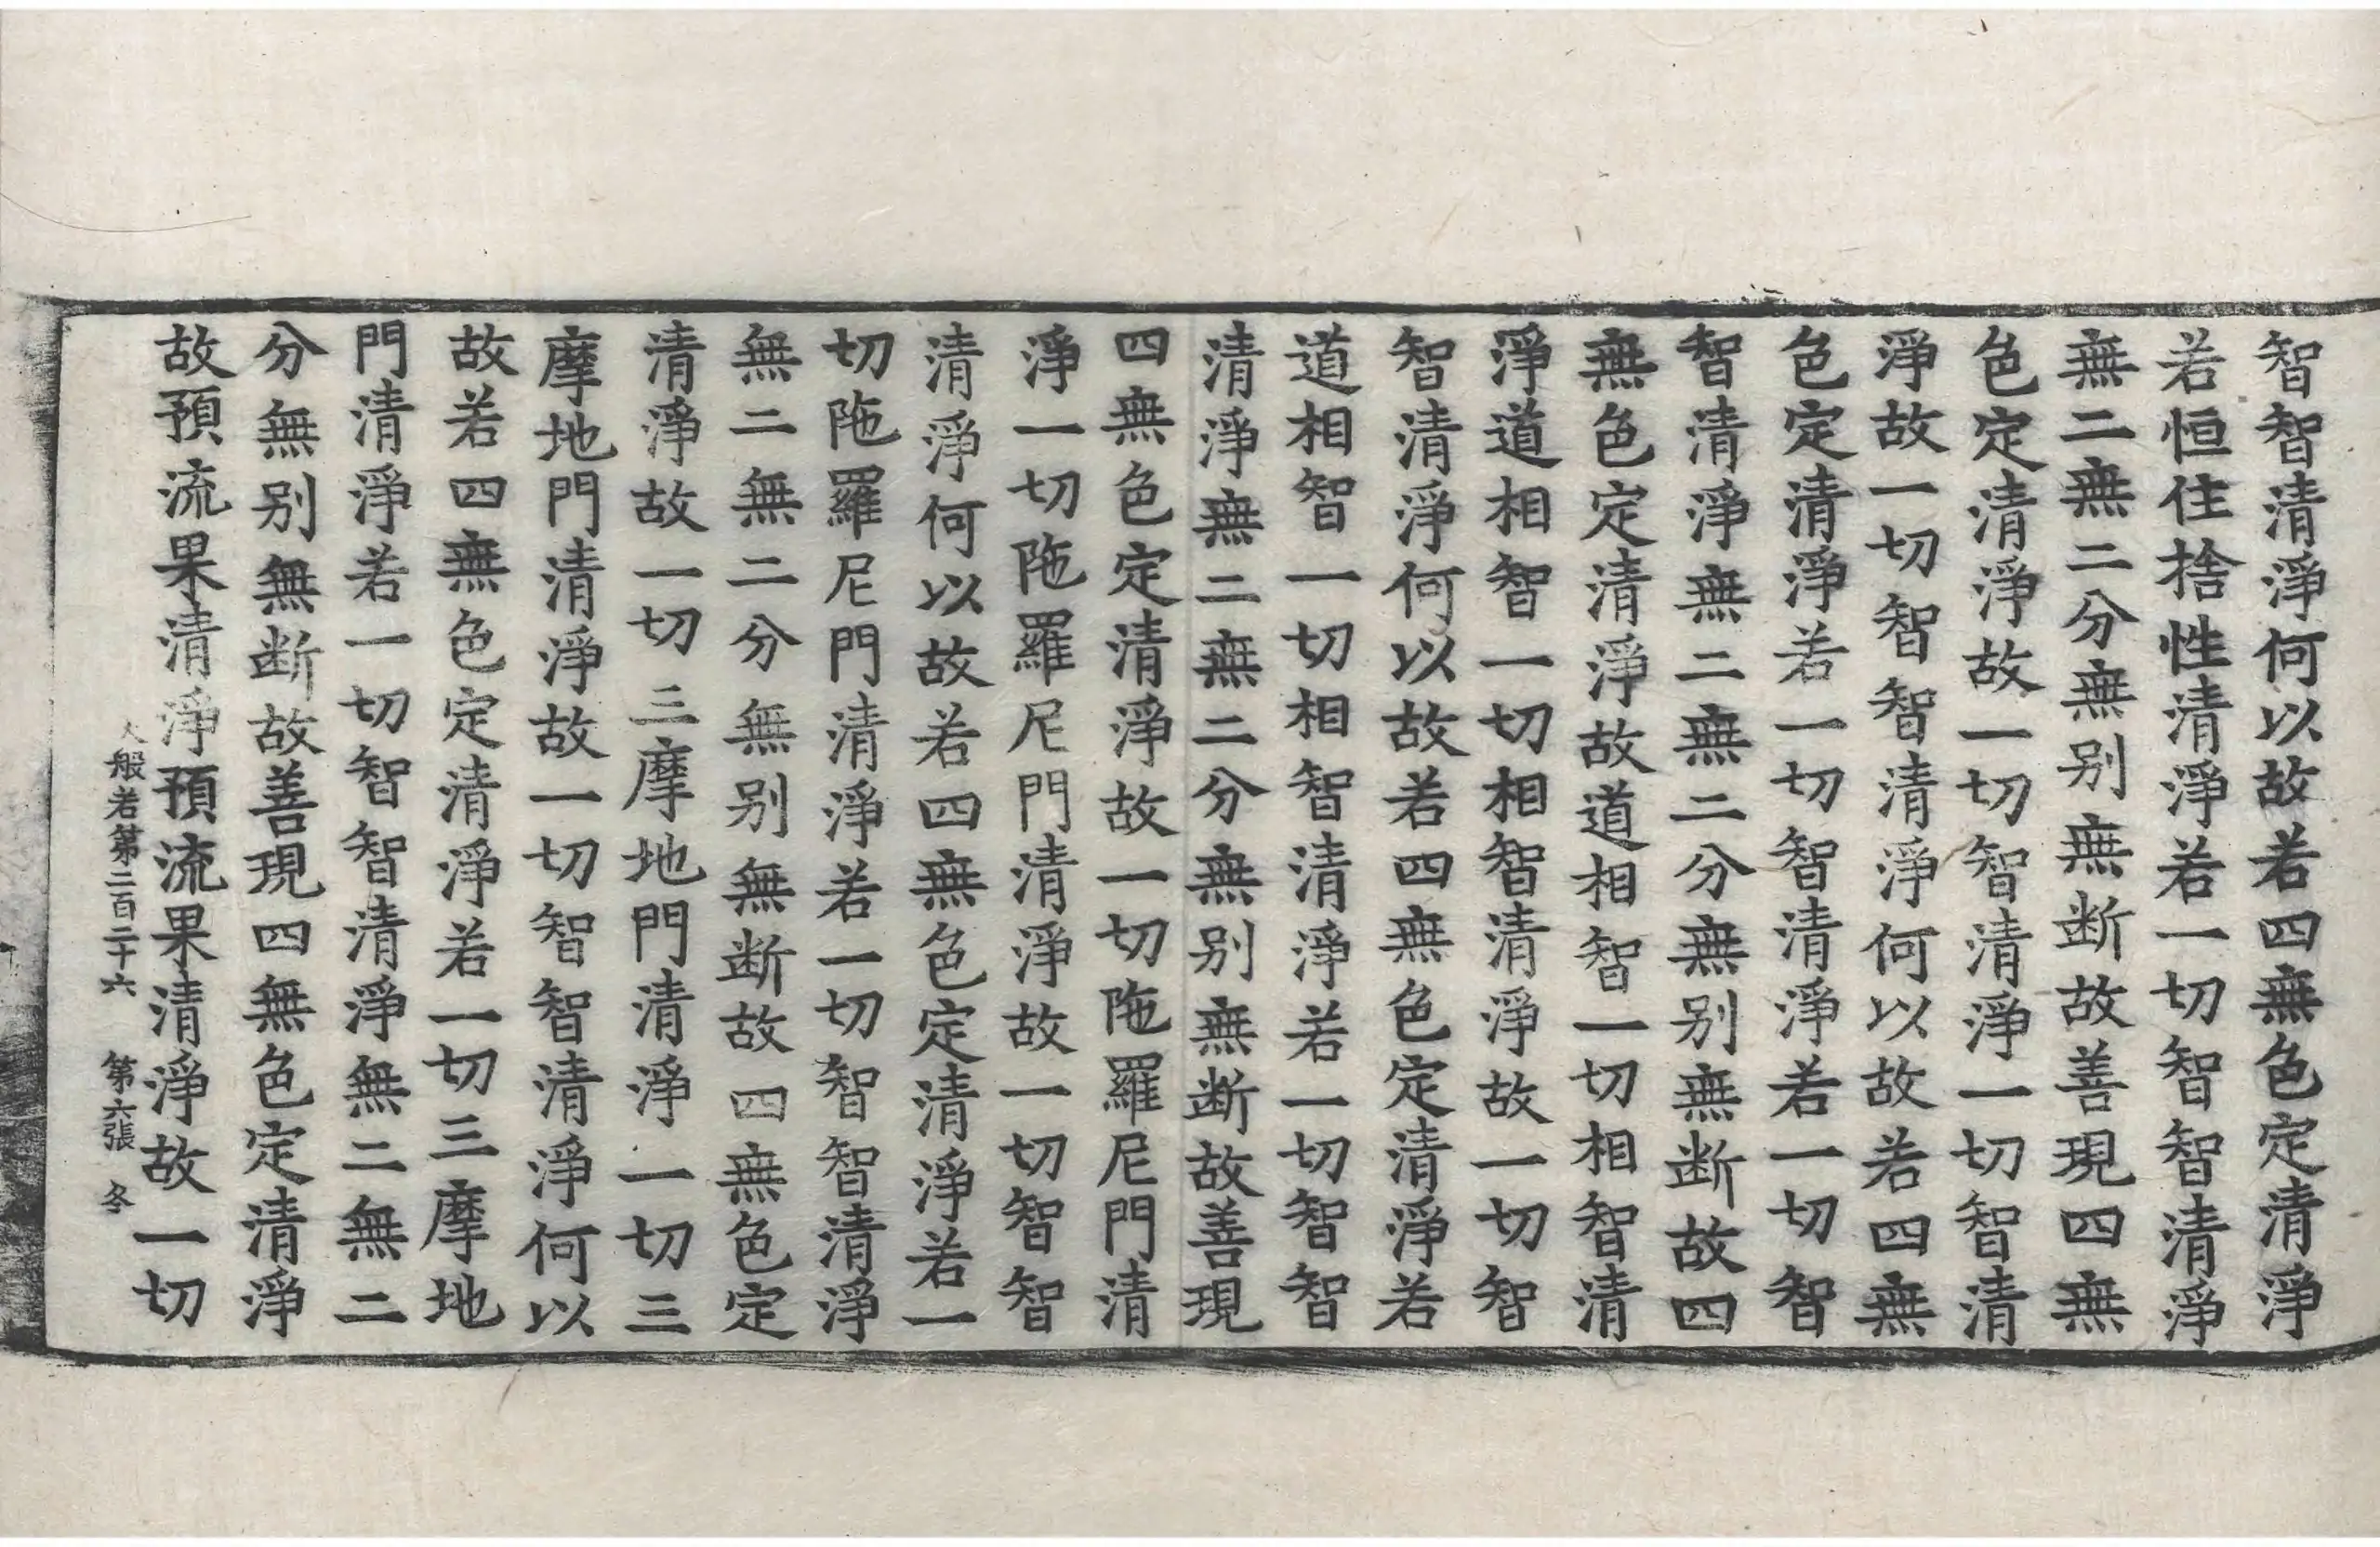 智智清淨何以故若四無色定清淨
若恒住捨性清淨若一切智智清淨
無二無二分無别無断故善現四無
色定清淨故一切智清淨一切智清
淨故一切智智清淨何以故若四無
色定清淨若一切智清淨若一切智
智清淨無二無二分無别無断故四
無色定清淨故道相智一切相智清
淨道相智一切相智清淨故一切智
智清淨何以故若四無色定清淨若
道相智一切相智清淨若一切智智
清淨無二無二分無别無断故善現
四無色定清淨故一切陁羅尼門清
淨一切陁羅尼門清淨故一切智智
清淨何以故若四無色定清淨若一
切陁羅尼門清淨若一切智智清淨
無二無二分無别無断故四無色定
清淨故一切三摩地門清淨一切三
摩地門清淨故一切智智清淨何以
故若四無色定清淨若一切三摩地
門清淨若一切智智清淨無二無二
分無别無断故善現四無色定清淨
故預流果清淨預流果清淨故一切
大般若第二百二十六 第六張 冬